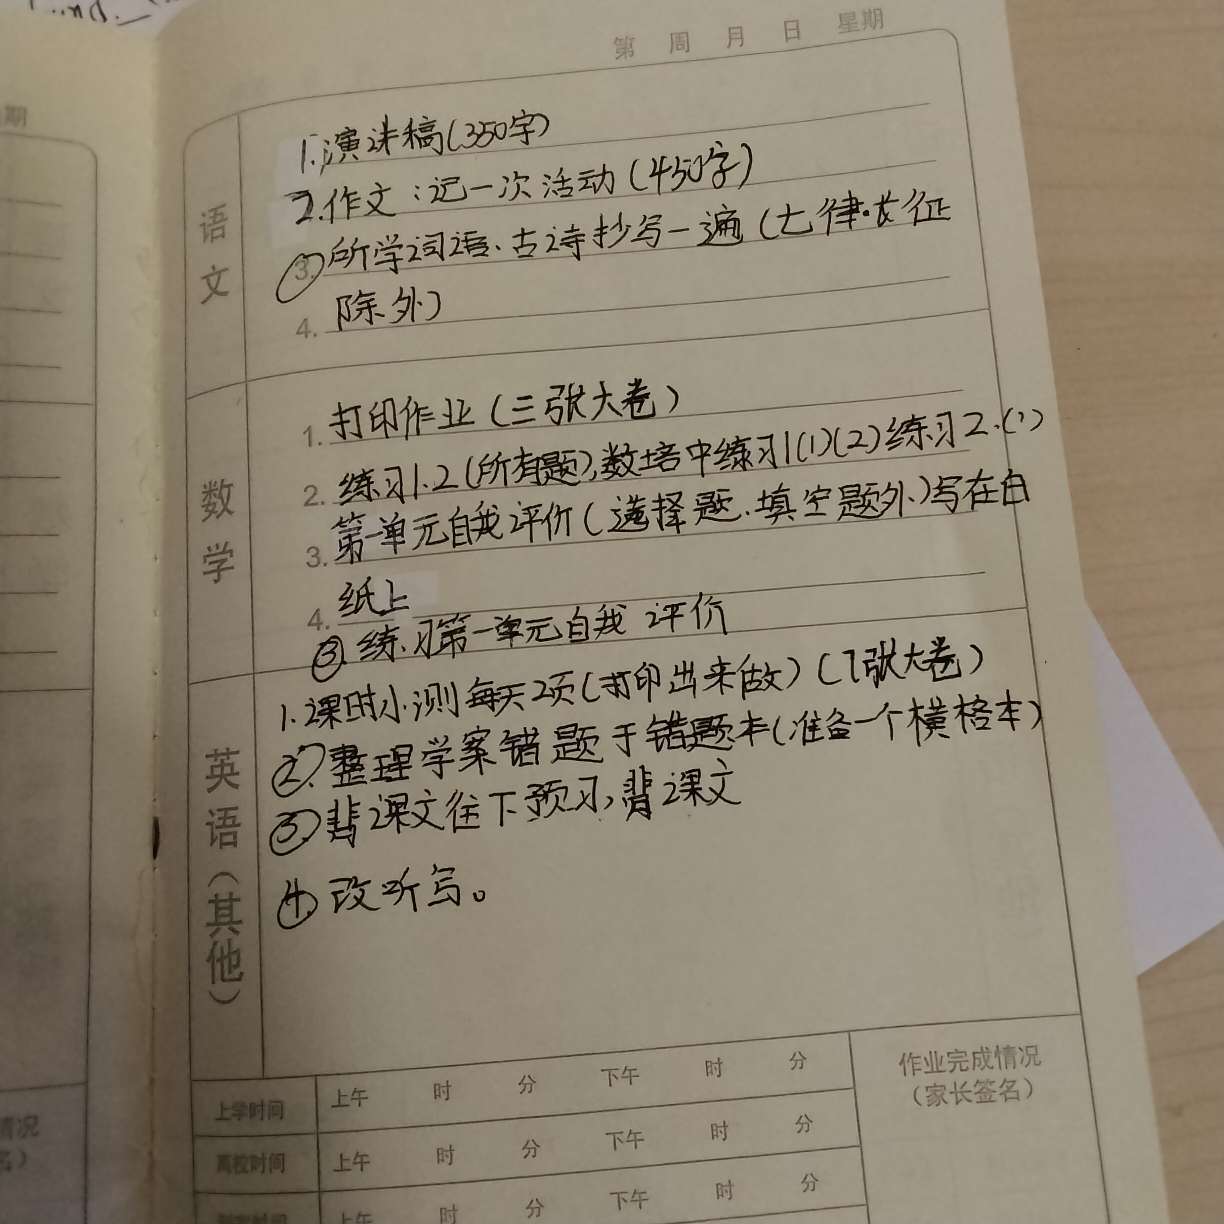 第 周 月 日 星期
期
语文
1.演讲稿(350字)
2.作文:记一次活动(450字)
③所学词语、古诗抄写一遍(七律·长征
4. 除外)
数学
1. 打印作业(三张大卷)
2. 练习1.2(所有题),数培中练习1(1)(2)练习2.(1)
3. 第一单元自我评价(选择题.填空题外)写在白
4. 纸上
③练习第一单元自我评价
英语(其他)
1.课时小测每天2页(打印出来做)(7张大卷)
②.整理学案错题于错题本(准备一个横格本)
③背课文往下预习,背课文
④改听写。
上学时间 上午 时 分 下午 时 分
离校时间 上午 时 分 下午 时 分
上午 时 分 下午 时 分
作业完成情况
(家长签名)
情况
名)